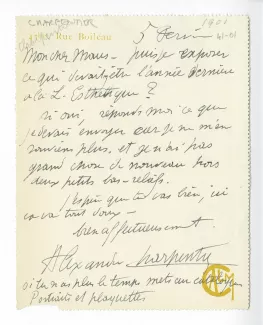 CHARPENTIER
1901
Rue Boileau
5 Février
Mon cher Maus - puis-je exposer
ce qui devait être l'année dernière
à la L. Esthétique ?
si oui, réponds moi ce que
je devais envoyer car je ne m'en
souviens plus. et je n'ai pas
grand chose de nouveau hors
deux petits bas-reliefs.
J'espère que tu vas bien, ici
ça va tout doux -
bien affectueusement.
Alexandre Charpentier
si tu n'as plus le temps mets au catalogue
Portraits et plaquettes